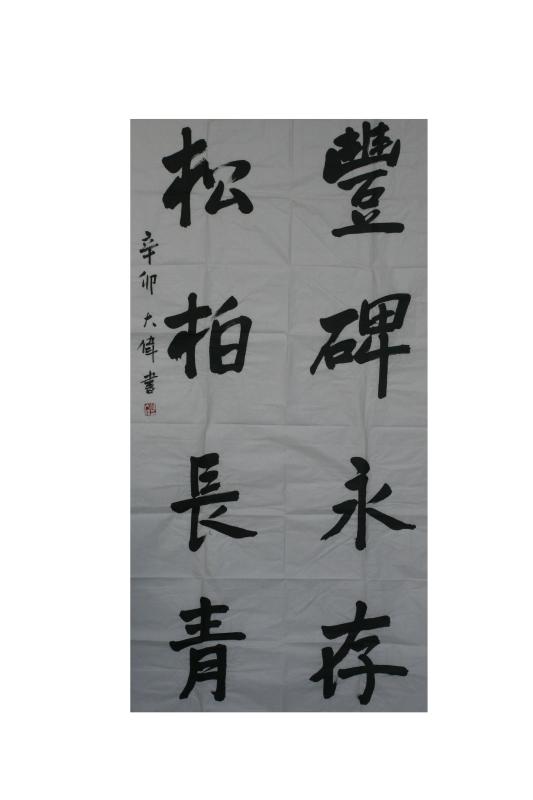 豐碑永存
松柏長青
辛卯大偉書